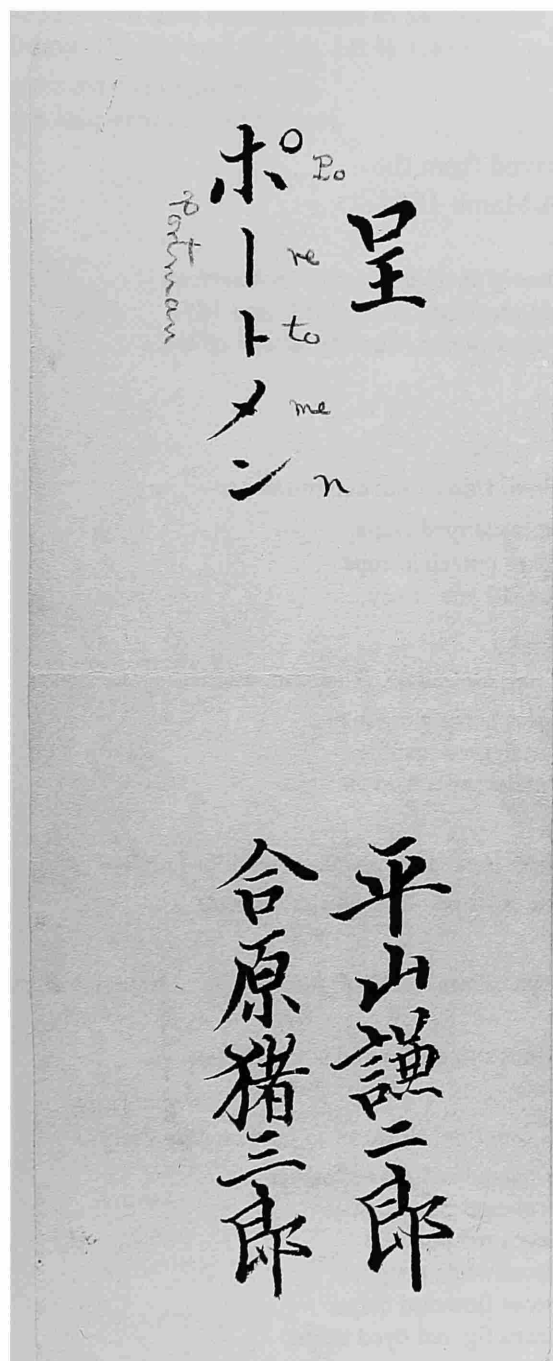 呈
ポートメン
Po
re
to
me
n
Portman
平山謙二郎
合原猪三郎